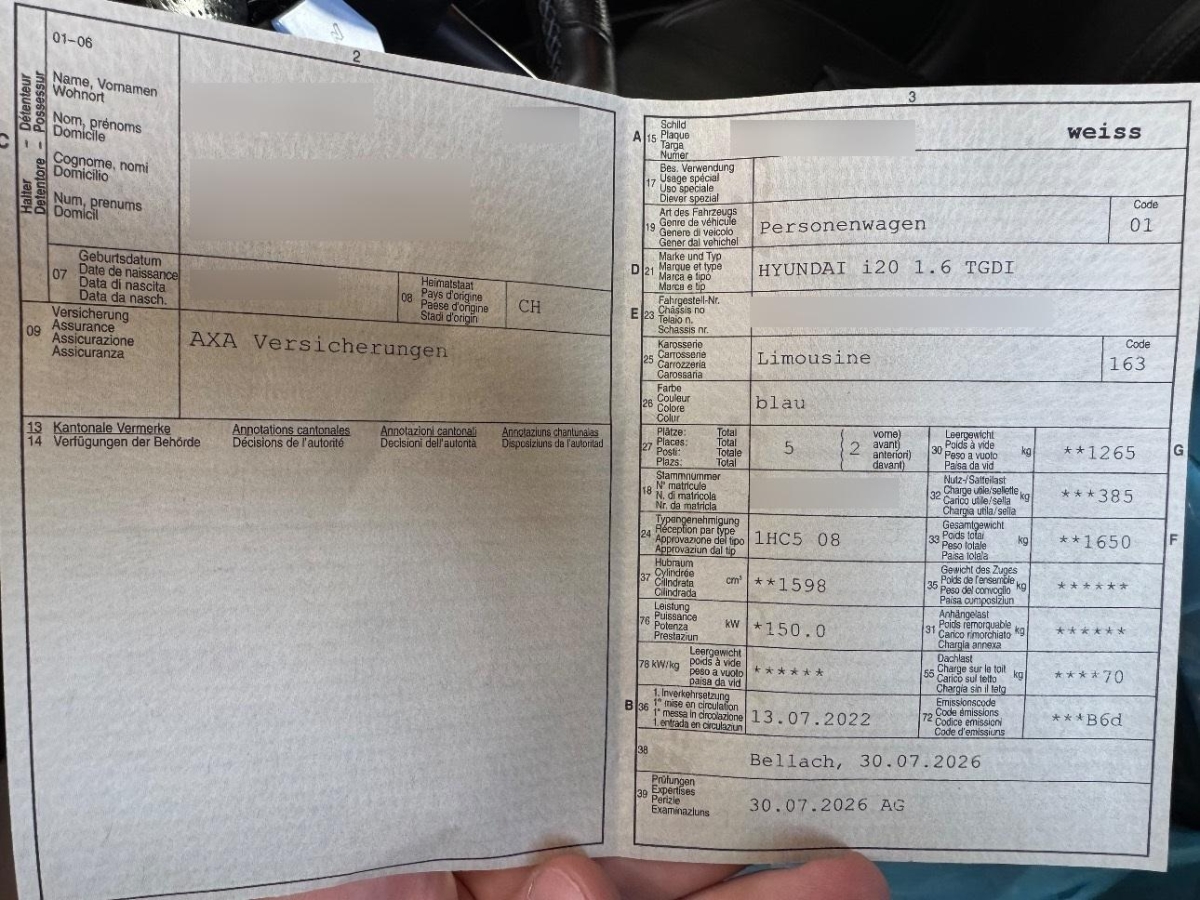 2
C
Halter – Détenteur
Detentore – Possessur
01–06
Name, Vornamen
Wohnort
Nom, prénoms
Domicile
Cognome, nomi
Domicilio
Num, prenums
Domicil
07
Geburtsdatum
Date de naissance
Data di nascita
Data da nasch.
08
Heimatstaat
Pays d'origine
Paese d'origine
Stadi d'origin
CH
09
Versicherung
Assurance
Assicurazione
Assicuranza
AXA Versicherungen
13 Kantonale Vermerke Annotations cantonales Annotazioni cantonali Annotaziuns chantunalas
14 Verfügungen der Behörde Décisions de l'autorité Decisioni dell'autorità Disposiziuns da l'autoritad
3
A
15
Schild
Plaque
Targa
Numer
weiss
17
Bes. Verwendung
Usage spécial
Uso speciale
Diever spezial
19
Art des Fahrzeugs
Genre de véhicule
Genere di veicolo
Gener dal vehichel
Personenwagen
Code
01
D
21
Marke und Typ
Marque et type
Marca e tipo
Marca e tip
HYUNDAI i20 1.6 TGDI
E
23
Fahrgestell-Nr.
Châssis no
Telaio n.
Schassis nr.
25
Karosserie
Carrosserie
Carrozzeria
Carossaria
Limousine
Code
163
26
Farbe
Couleur
Colore
Colur
blau
27
Plätze: Total
Places: Total
Posti: Totale
Plazs: Total
5
2
vorne)
avant)
anteriori)
davant)
30
Leergewicht
Poids à vide
Peso a vuoto
Paisa da vid
kg
**1265
G
18
Stammnummer
N° matricule
N. di matricola
Nr. da matricla
32
Nutz-/Sattellast
Charge utile/sellette
Carico utile/sella
Chargia utila/sella
kg
***385
24
Typengenehmigung
Réception par type
Approvazione del tipo
Approvaziun dal tip
1HC5 08
33
Gesamtgewicht
Poids total
Peso totale
Paisa totala
kg
**1650
F
37
Hubraum
Cylindrée
Cilindrata
Cilindrada
cm³
**1598
35
Gewicht des Zuges
Poids de l'ensemble
Peso del convoglio
Paisa cumposiziun
kg
******
76
Leistung
Puissance
Potenza
Prestaziun
kW
*150.0
31
Anhängelast
Poids remorquable
Carico rimorchiato
Chargia annexa
kg
******
78 kW/kg
Leergewicht
poids à vide
peso a vuoto
paisa da vid
******
55
Dachlast
Charge sur le toit
Carico sul tetto
Chargia sin il tetg
kg
****70
B
36
1. Inverkehrsetzung
1re mise en circulation
1a messa in circolazione
1. entrada en circulaziun
13.07.2022
72
Emissionscode
Code émissions
Codice emissioni
Code d'emissiuns
***B6d
38
Bellach, 30.07.2026
39
Prüfungen
Expertises
Perizie
Examinaziuns
30.07.2026 AG